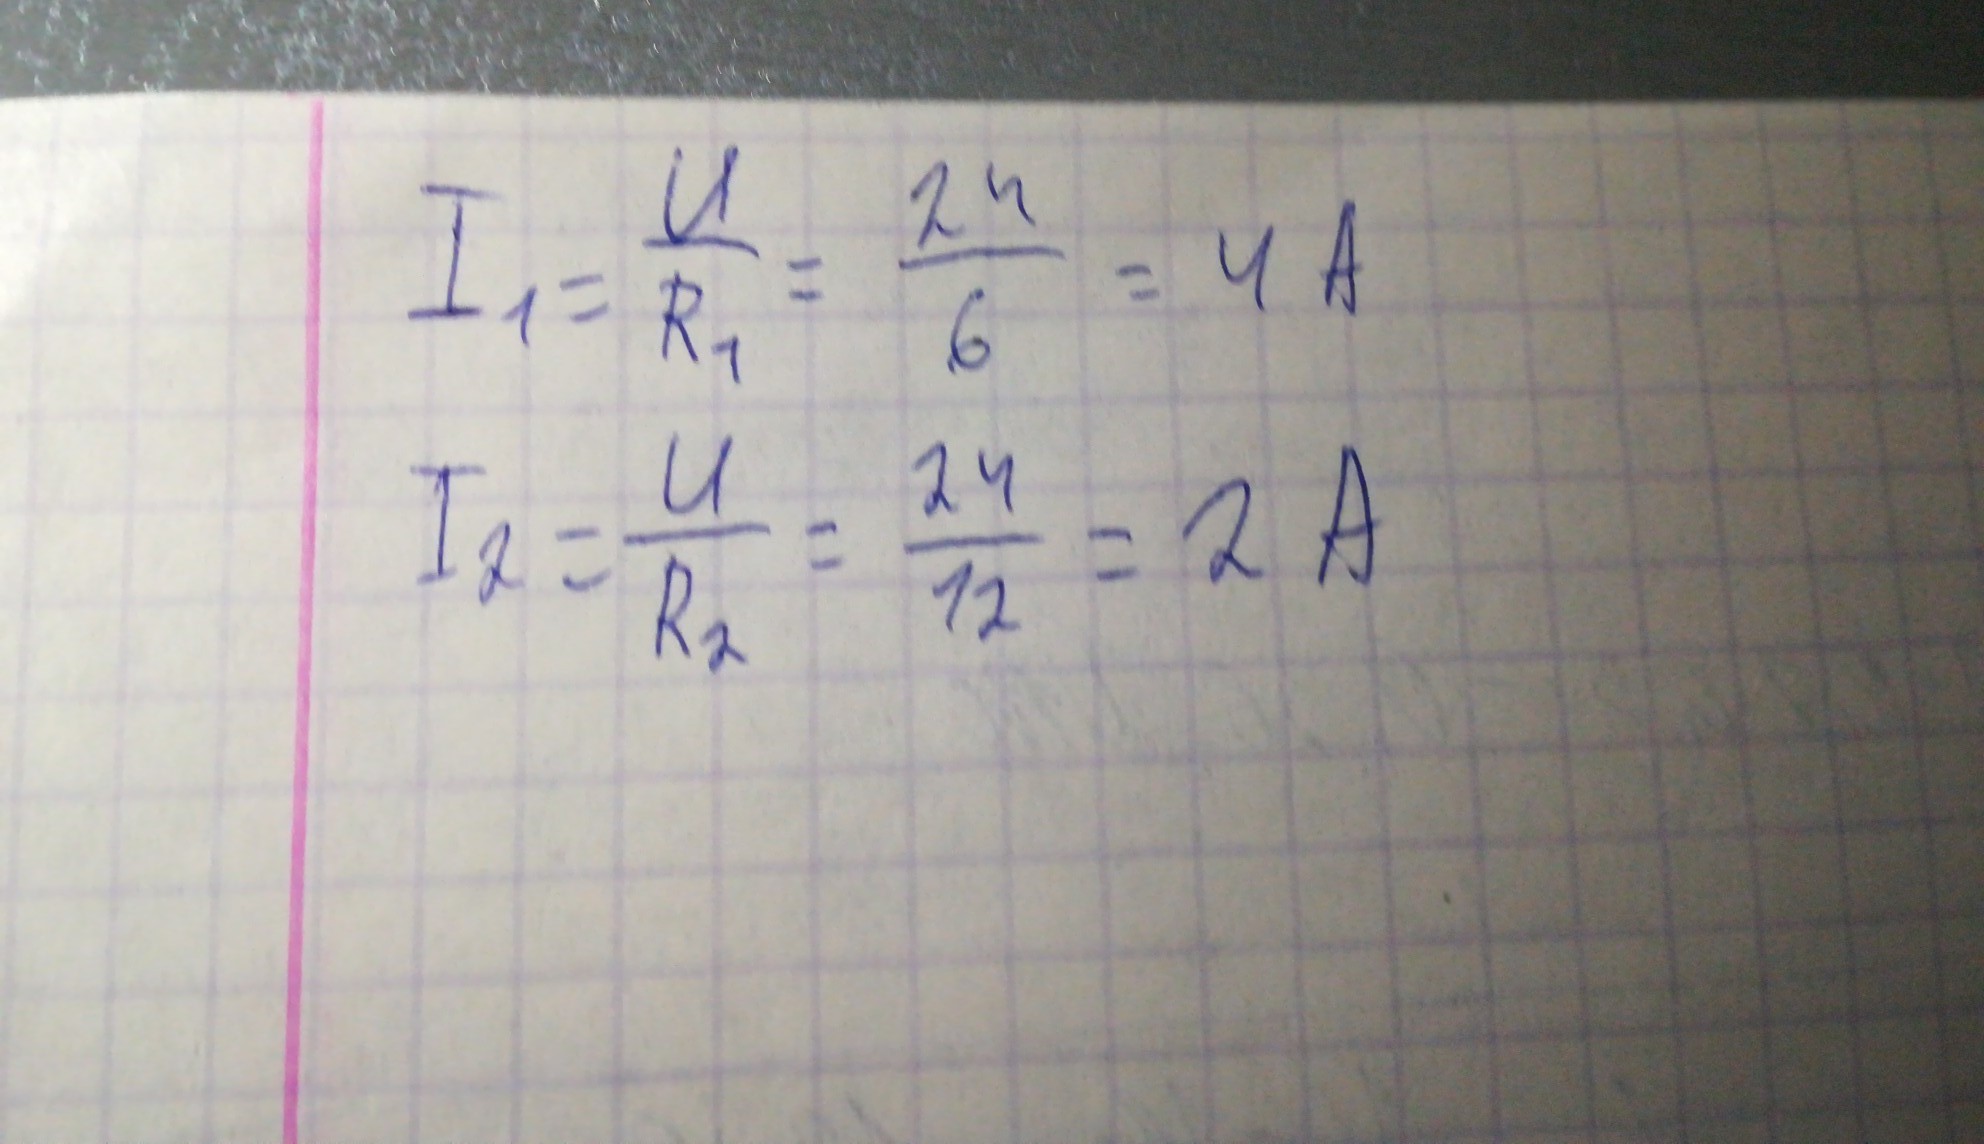 I₁ = U/R₁ = 24/6 = 4 A
I₂ = U/R₂ = 24/12 = 2 A